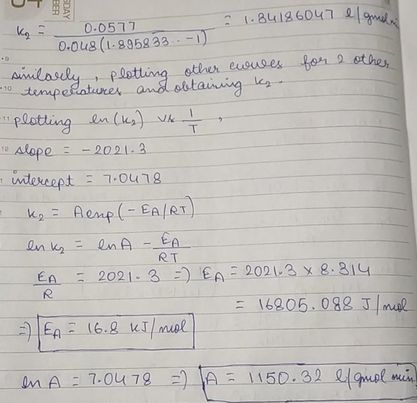 k₂ = 0.0577 / 0.048(1.895833 - -1) = 1.34186047 l/gmol min
similarly, plotting other curves for 2 other
temperatures and obtaining k₂.
plotting ln(k₂) vs 1/T,
slope = -2021.3
intercept = 7.0478
k₂ = A exp(-EA/RT)
ln k₂ = ln A - EA/RT
EA/R = 2021.3 => EA = 2021.3 × 8.314
= 16805.088 J/mol
=> EA = 16.8 kJ/mol
ln A = 7.0478 => A = 1150.32 l/gmol min